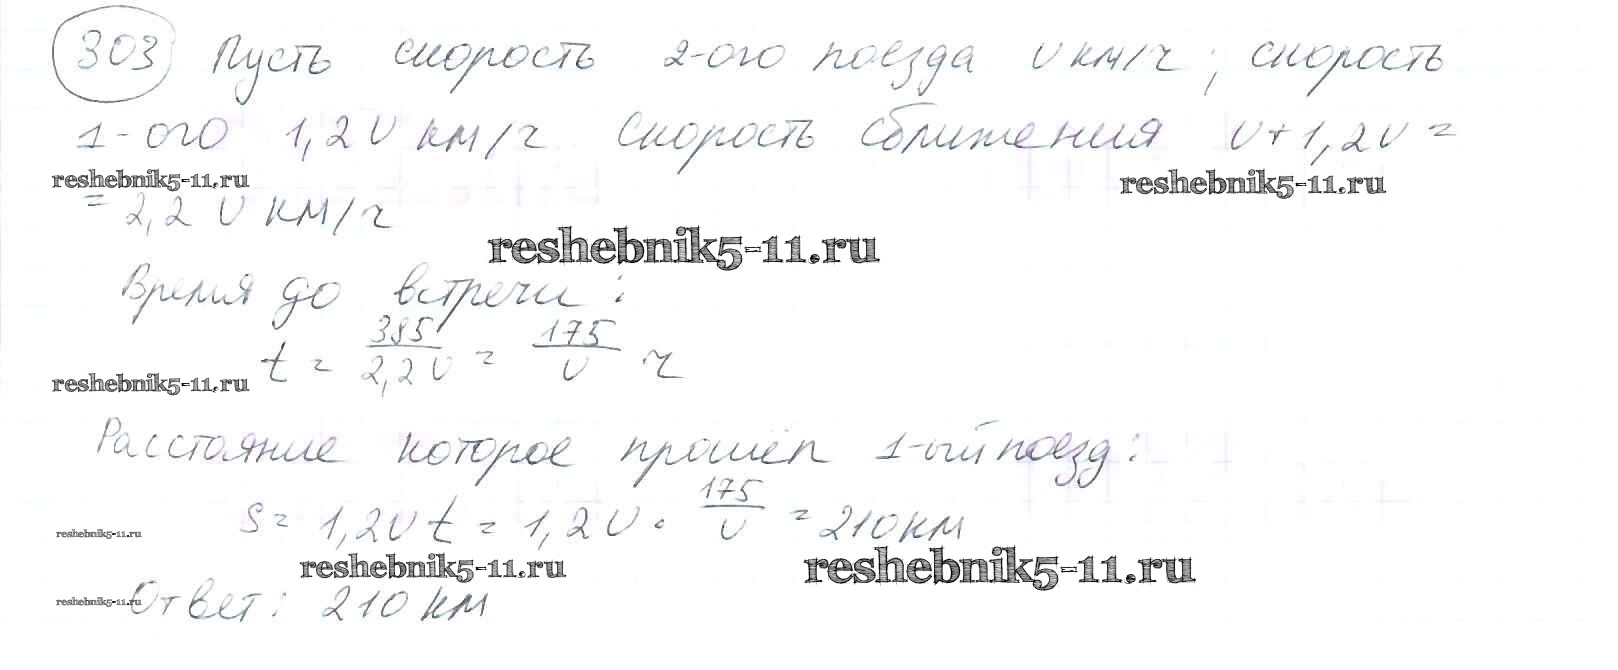 303 Пусть скорость 2-ого поезда υ км/ч, скорость
1-ого 1,2υ км/ч Скорость сближения υ+1,2υ=
reshebnik5-11.ru reshebnik5-11.ru
= 2,2 υ км/ч
reshebnik5-11.ru
Время до встречи:
t = 385/2,2υ = 175/υ ч
reshebnik5-11.ru
Расстояние которое прошёл 1-ый поезд:
S = 1,2υ t = 1,2υ · 175/υ = 210км
reshebnik5-11.ru
reshebnik5-11.ru reshebnik5-11.ru
reshebnik5-11.ru
Ответ: 210 км